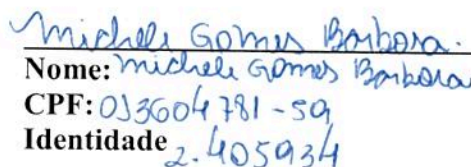 Michele Gomes Barbosa.
Nome: Michele Gomes Barbosa
CPF: 013604781-59
Identidade 2.405934